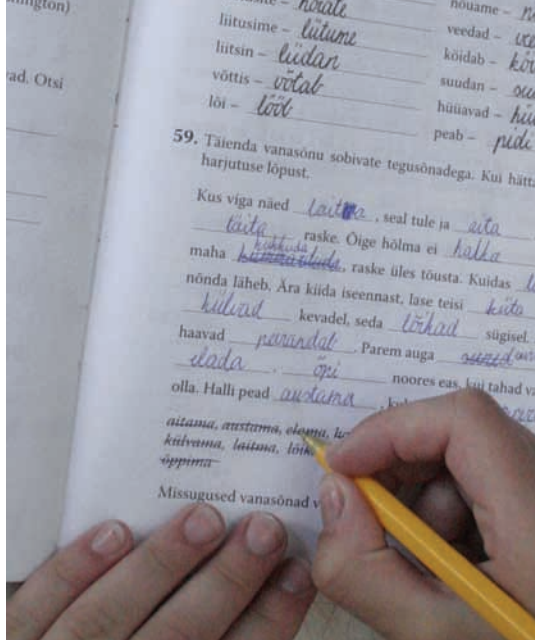 nington)
ad. Otsi
– hõiate
liitusime – liitume
liitsin – liidan
võttis – võtab
lõi – lööb
nõuame –
veedad –
köidab –
suudan –
hüüavad –
peab – pidi
59. Täienda vanasõnu sobivate tegusõnadega. Kui hätta
harjutuse lõpust.
Kus viga näed laita, seal tule ja aita
laita raske. Õige hõlma ei hakka
maha kukkuda, raske üles tõusta. Kuidas
nõnda läheb. Ära kiida iseennast, lase teisi kiita
külvad kevadel, seda lõikad sügisel.
haavad parandab. Parem auga
elada. õpi noores eas, kui tahad
olla. Halli pead austama,
aitama, austama, elama,
külvama, laitma,
õppima
Missugused vanasõnad